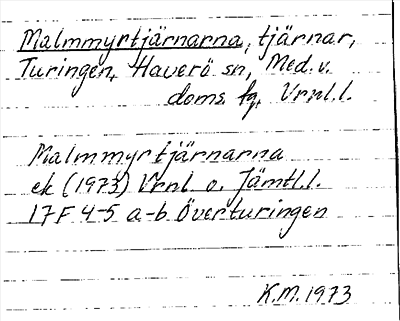 Malmmyrtjärnarna, tjärnar,
Turingen, Haverö sn, Med. v.
doms fg, Vrnl.l.
Malmmyrtjärnarna
ek (1973) Vrnl o. Jämtl.l.
17F 4-5 a-b Överturingen
K.M. 1973